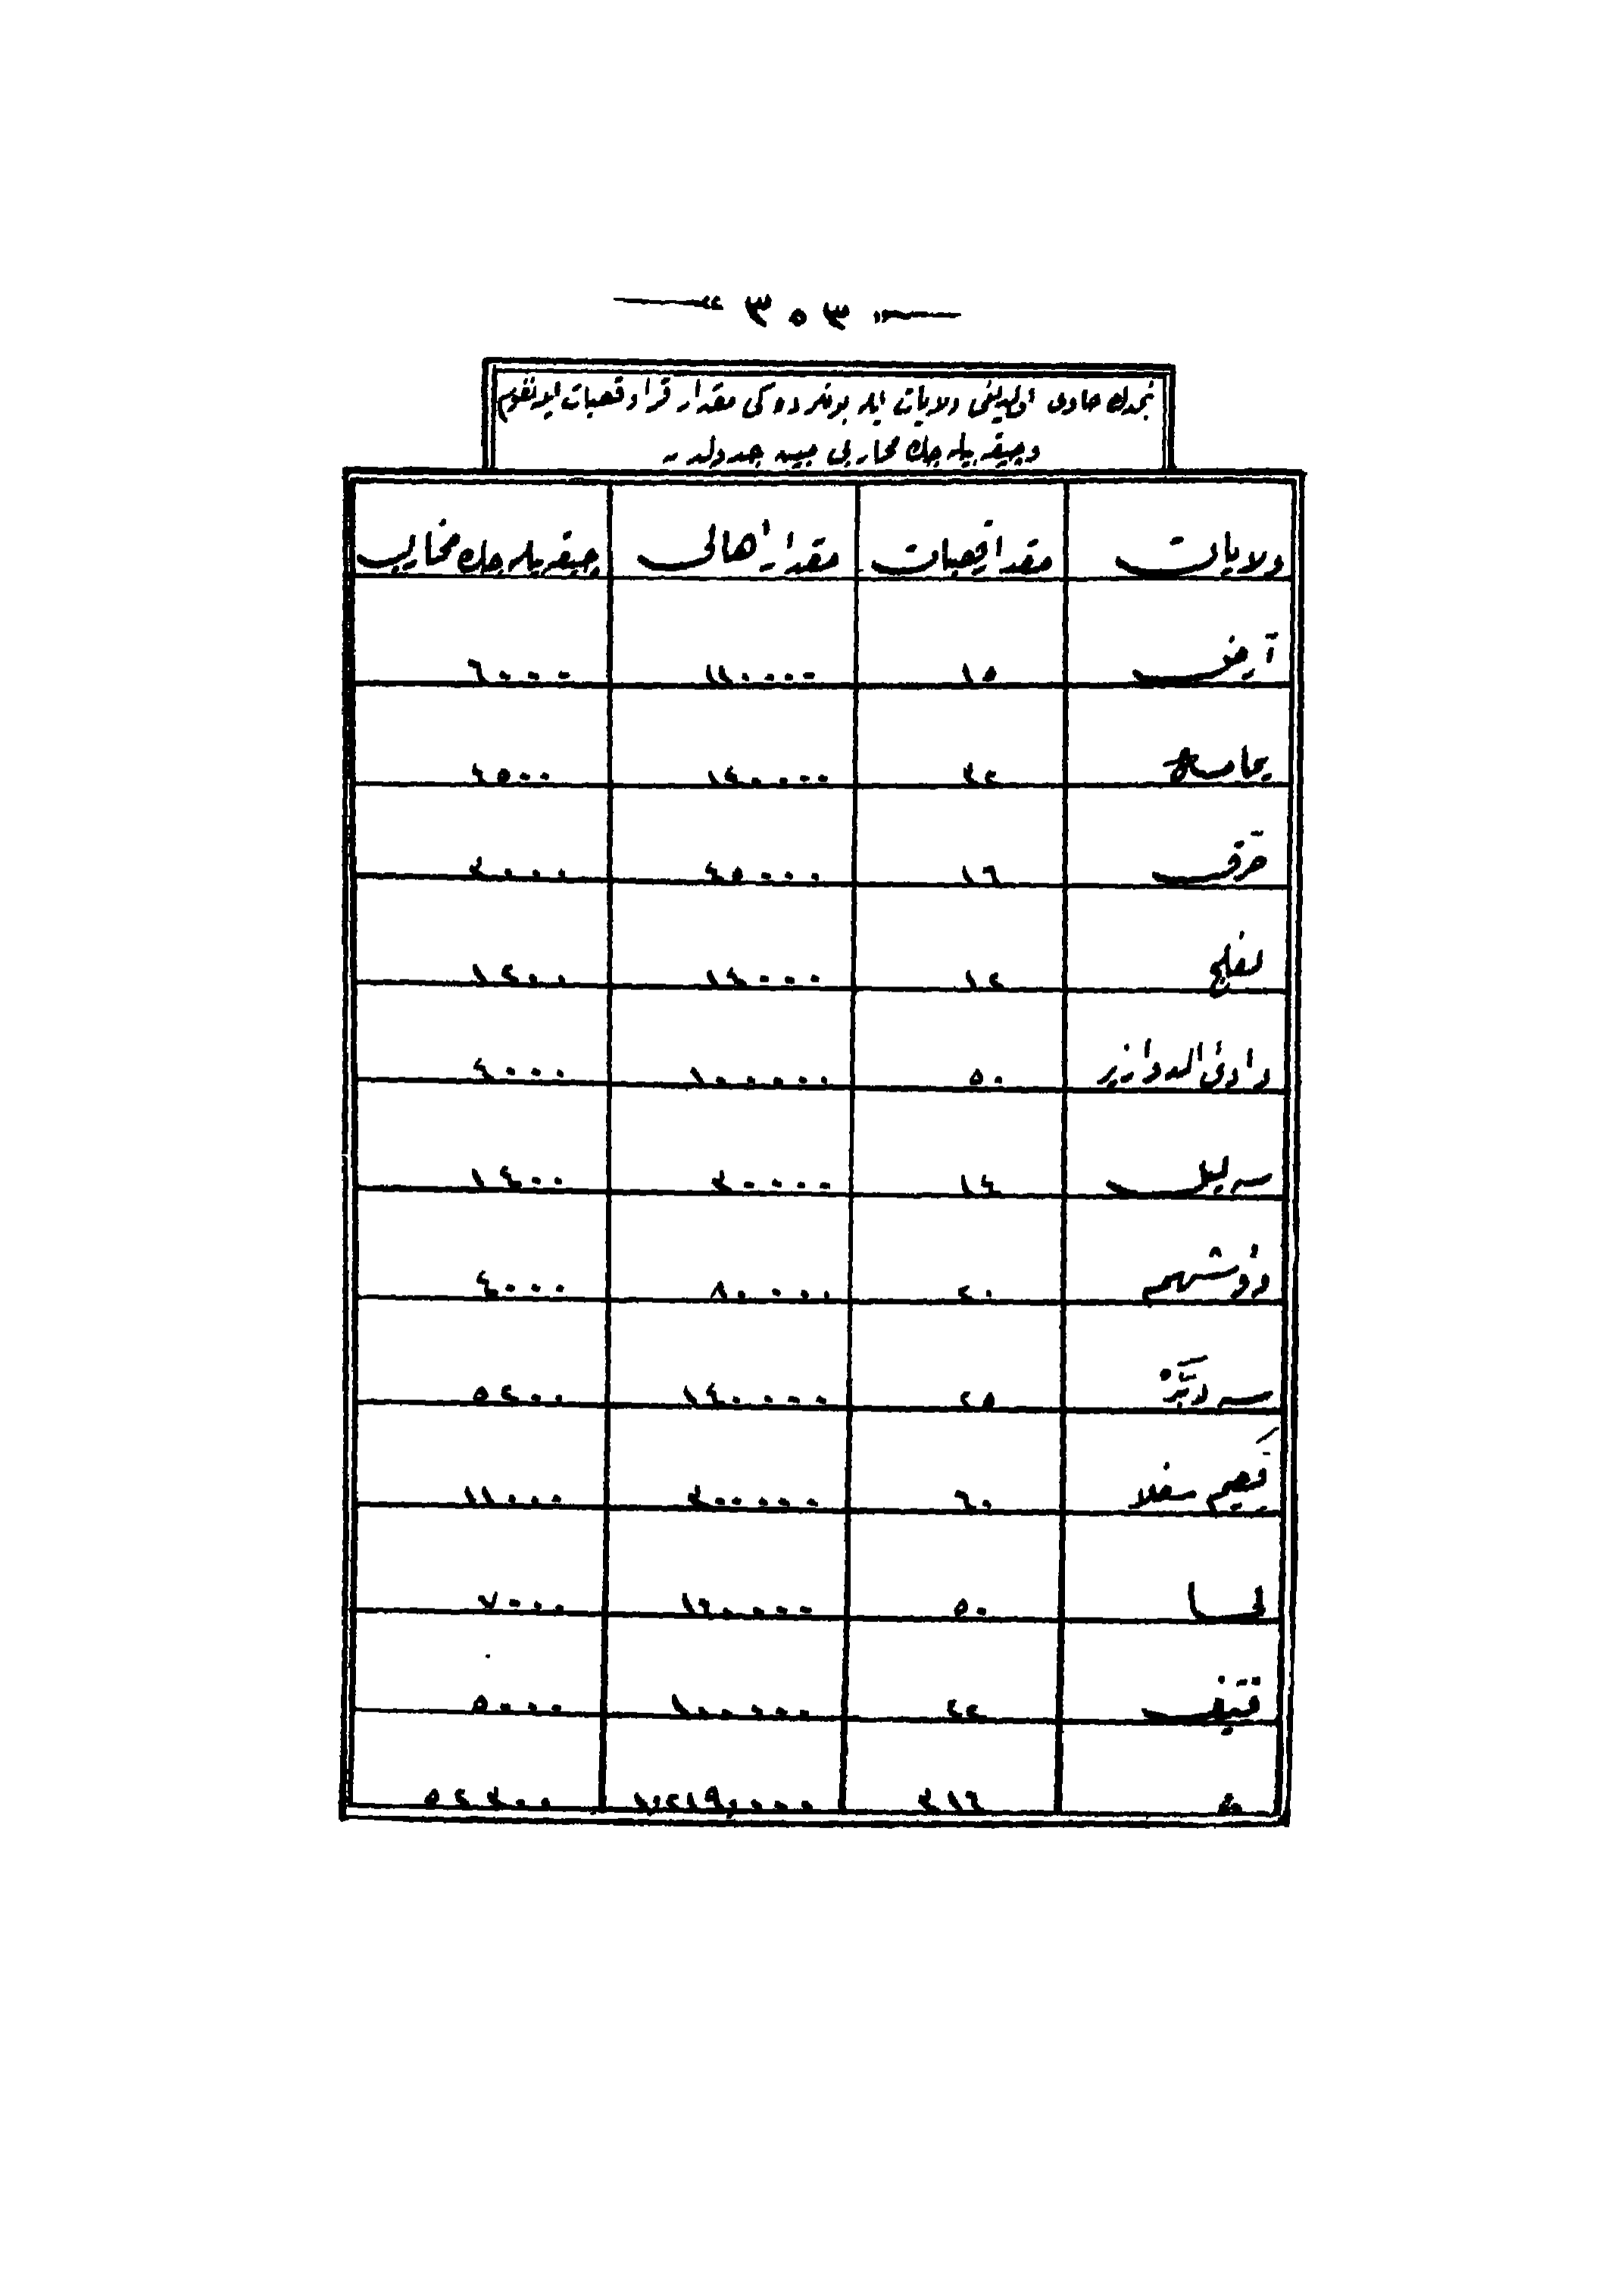 — ٣٥٣ —
نجدك حاوى اولديغى ولايات ايله بونلرده كى مقدار قرا و قصبات ايله نفوس
وچيقه بيله جك محاربى مبين جدولدر
ولايات مقدار قصبات مقدار اهالى چيقه بيله جك محارب
آرض ١٥ ١١٠٠٠٠ ٦٠٠٠
يمامه ٣٢ ١٤٠٠٠٠ ٤٥٠٠
حرق ١٦ ٤٥٠٠٠ ٣٠٠٠
لفلج ١٢ ١٤٠٠٠ ١٢٠٠
وادئ الدوازير ٥٠ ١٠٠٠٠٠ ٤٠٠٠
سه ليل ١٤ ٣٠٠٠٠ ١٤٠٠
ذو شهم ٢٠ ٨٠٠٠٠ ٤٠٠٠
سه ديَّر ٢٥ ١٤٠٠٠٠ ٥٢٠٠
قصيم سفلا ٦٠ ٣٠٠٠٠٠ ١١٠٠٠
لحسا ٥٠ ١٦٠٠٠٠ ٧٠٠٠
قتيف ٢٢ ١٠٠٠٠٠ ٥٠٠٠
٣١٦ ١,٢١٩,٠٠٠ ٥٢٣٠٠